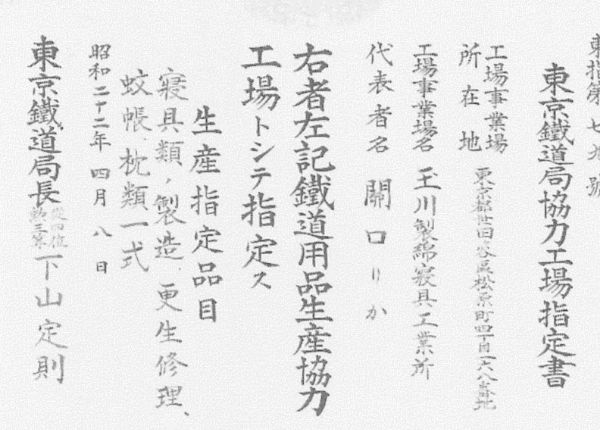 東指第七九號
東京鐵道局協力工場指定書
工場事業場
所在地
東京都世田谷區松原町四丁目二六八番地
工場事業場名 玉川製綿寢具工業所
代表者名 關口りか
右者左記鐵道用品生産協力
工場トシテ指定ス
生産指定品目
寢具類ノ製造、更生修理、
蚊帳、枕類一式
昭和二十二年四月八日
東京鐵道局長 從四位 勲三等 下山定則